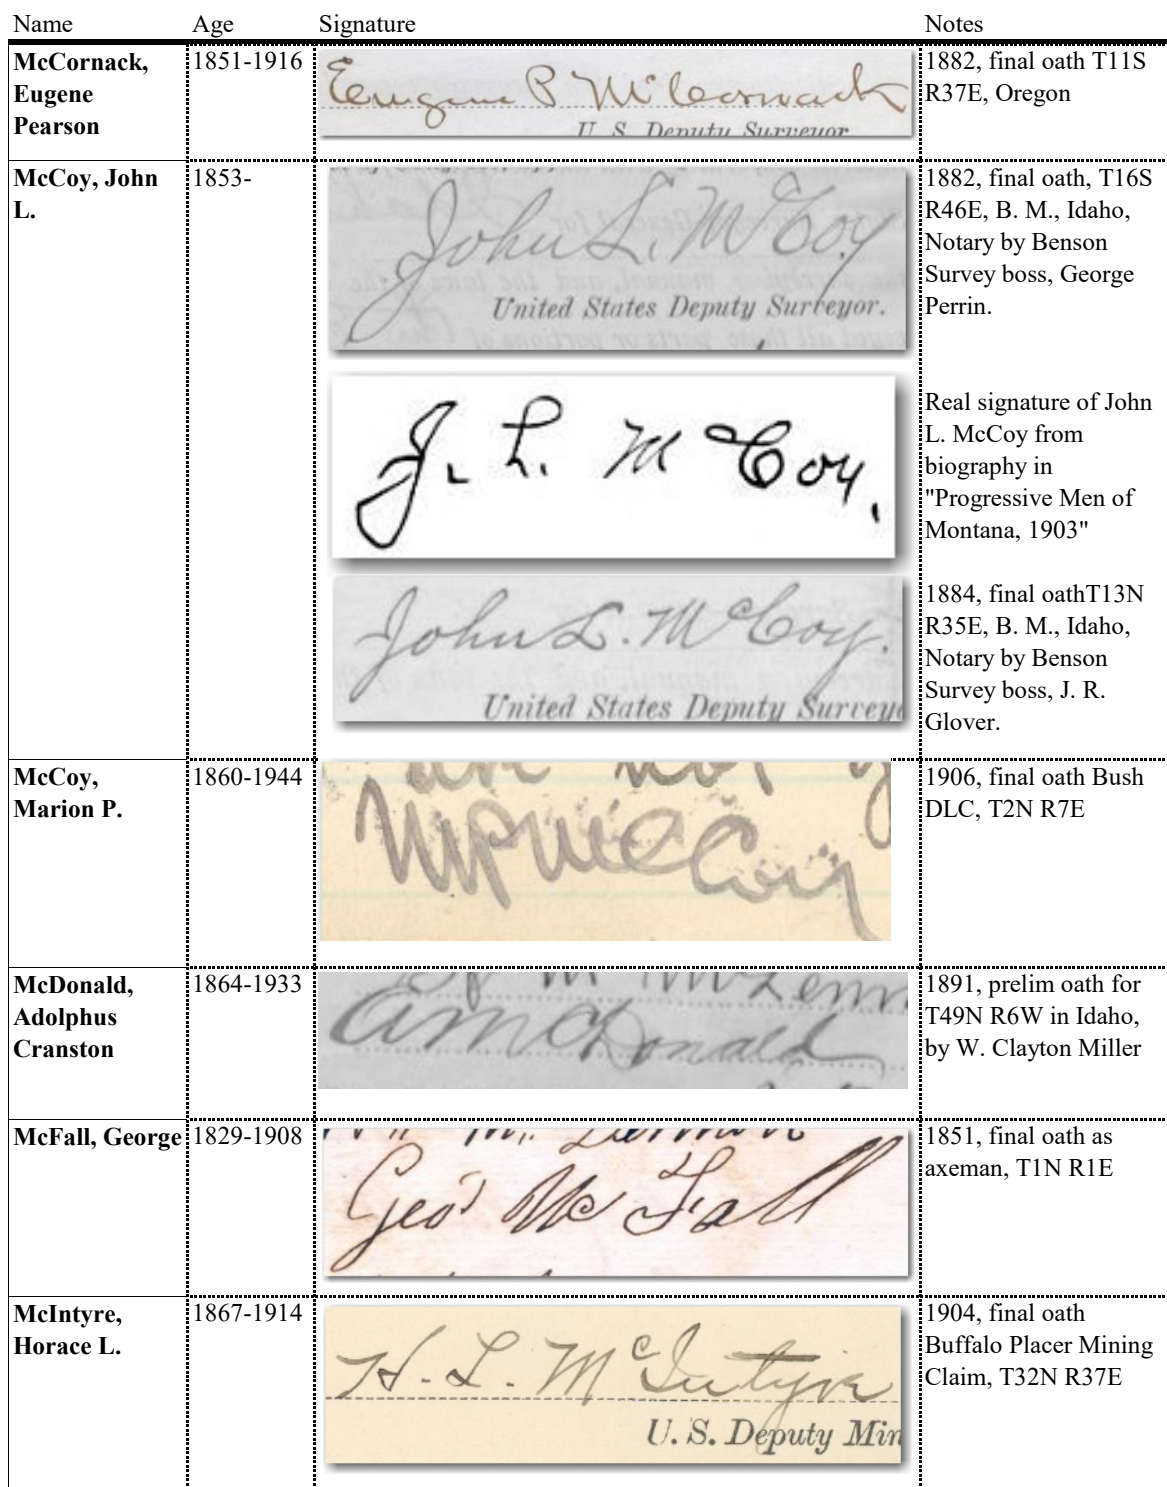 Name Age Signature Notes
McCornack, Eugene Pearson
1851-1916
Eugene P McCornack
U. S. Deputy Surveyor
1882, final oath T11S
R37E, Oregon
McCoy, John
L.
1853-
John L. McCoy
United States Deputy Surveyor.
1882, final oath, T16S
R46E, B. M., Idaho,
Notary by Benson
Survey boss, George
Perrin.
J. L. McCoy.
Real signature of John
L. McCoy from
biography in
"Progressive Men of
Montana, 1903"
John L. McCoy.
United States Deputy Surveyo
1884, final oathT13N
R35E, B. M., Idaho,
Notary by Benson
Survey boss, J. R.
Glover.
McCoy,
Marion P.
1860-1944
MP McCoy
1906, final oath Bush
DLC, T2N R7E
McDonald,
Adolphus
Cranston
1864-1933
A McDonald
1891, prelim oath for
T49N R6W in Idaho,
by W. Clayton Miller
McFall, George
1829-1908
Geo McFall
1851, final oath as
axeman, T1N R1E
McIntyre,
Horace L.
1867-1914
H. L. McIntyre
U. S. Deputy Min
1904, final oath
Buffalo Placer Mining
Claim, T32N R37E